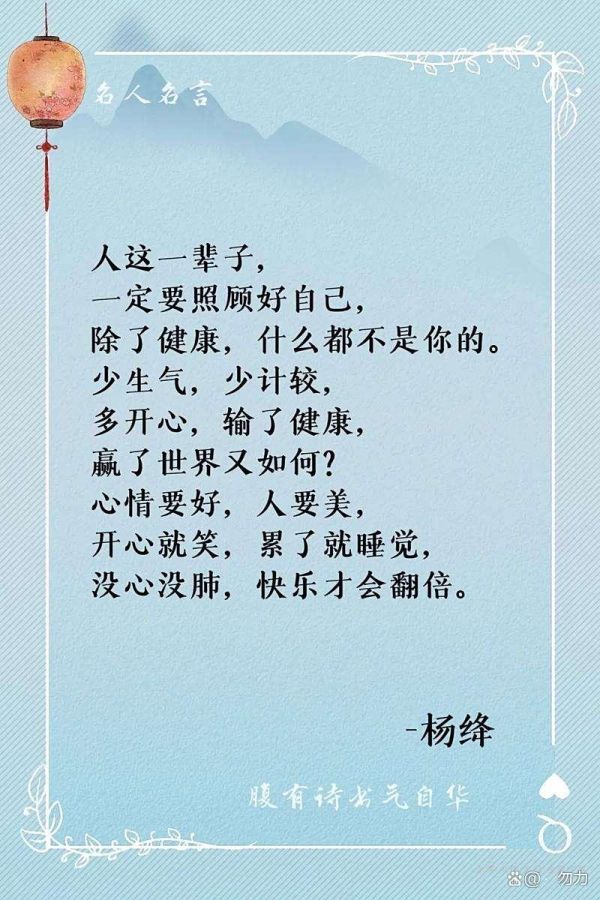 名人名言
人这一辈子，
一定要照顾好自己，
除了健康，什么都不是你的。
少生气，少计较，
多开心，输了健康，
赢了世界又如何？
心情要好，人要美，
开心就笑，累了就睡觉，
没心没肺，快乐才会翻倍。
-杨绛
腹有诗书气自华
@ 勿力